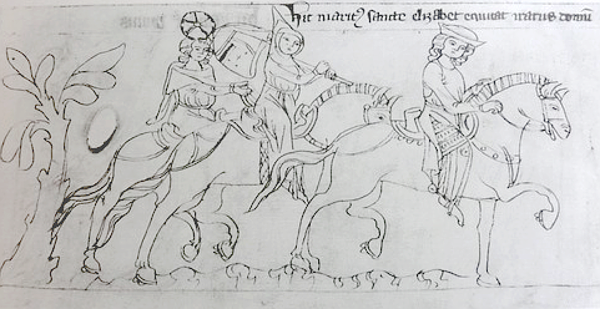 Hic maritꝰ sancte elizabet equitat iratus domū